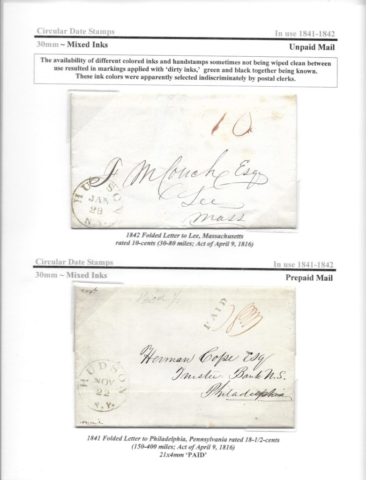 Circular Date Stamps In use 1841-1842
30mm ~ Mixed Inks Unpaid Mail
The availability of different colored inks and handstamps sometimes not being wiped clean between
use resulted in markings applied with 'dirty inks,' green and black together being known.
These ink colors were apparently selected indiscriminately by postal clerks.
10
F. M Couch Esq
Lee
Mass
HUDSON
JAN
28
N.Y.
1842 Folded Letter to Lee, Massachusetts
rated 10-cents (30-80 miles; Act of April 9, 1816)
Circular Date Stamps In use 1841-1842
30mm ~ Mixed Inks Prepaid Mail
PAID
Herman Cope Esq
Trustee Bank U.S.
Philadelphia
HUDSON
NOV
22
N.Y.
1841 Folded Letter to Philadelphia, Pennsylvania rated 18-1/2-cents
(150-400 miles; Act of April 9, 1816)
21x4mm 'PAID'